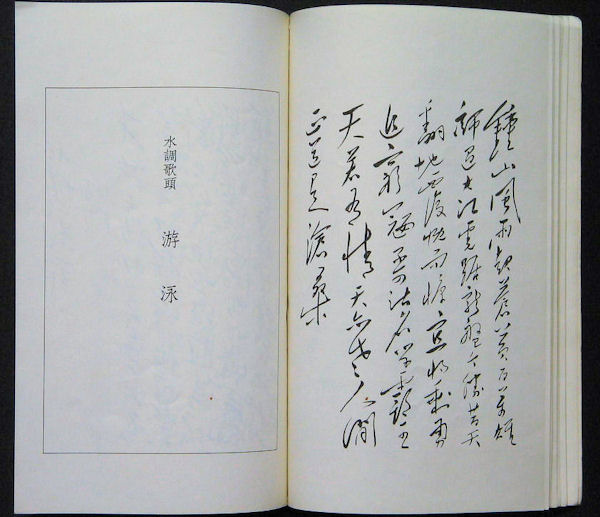 鍾山風雨起蒼黃百萬雄
師過大江虎踞龍盤今勝昔天
翻地覆慨而慷宜將剩勇
追窮寇不可沽名學霸王
天若有情天亦老人間
正道是滄桑
水調歌頭 游泳